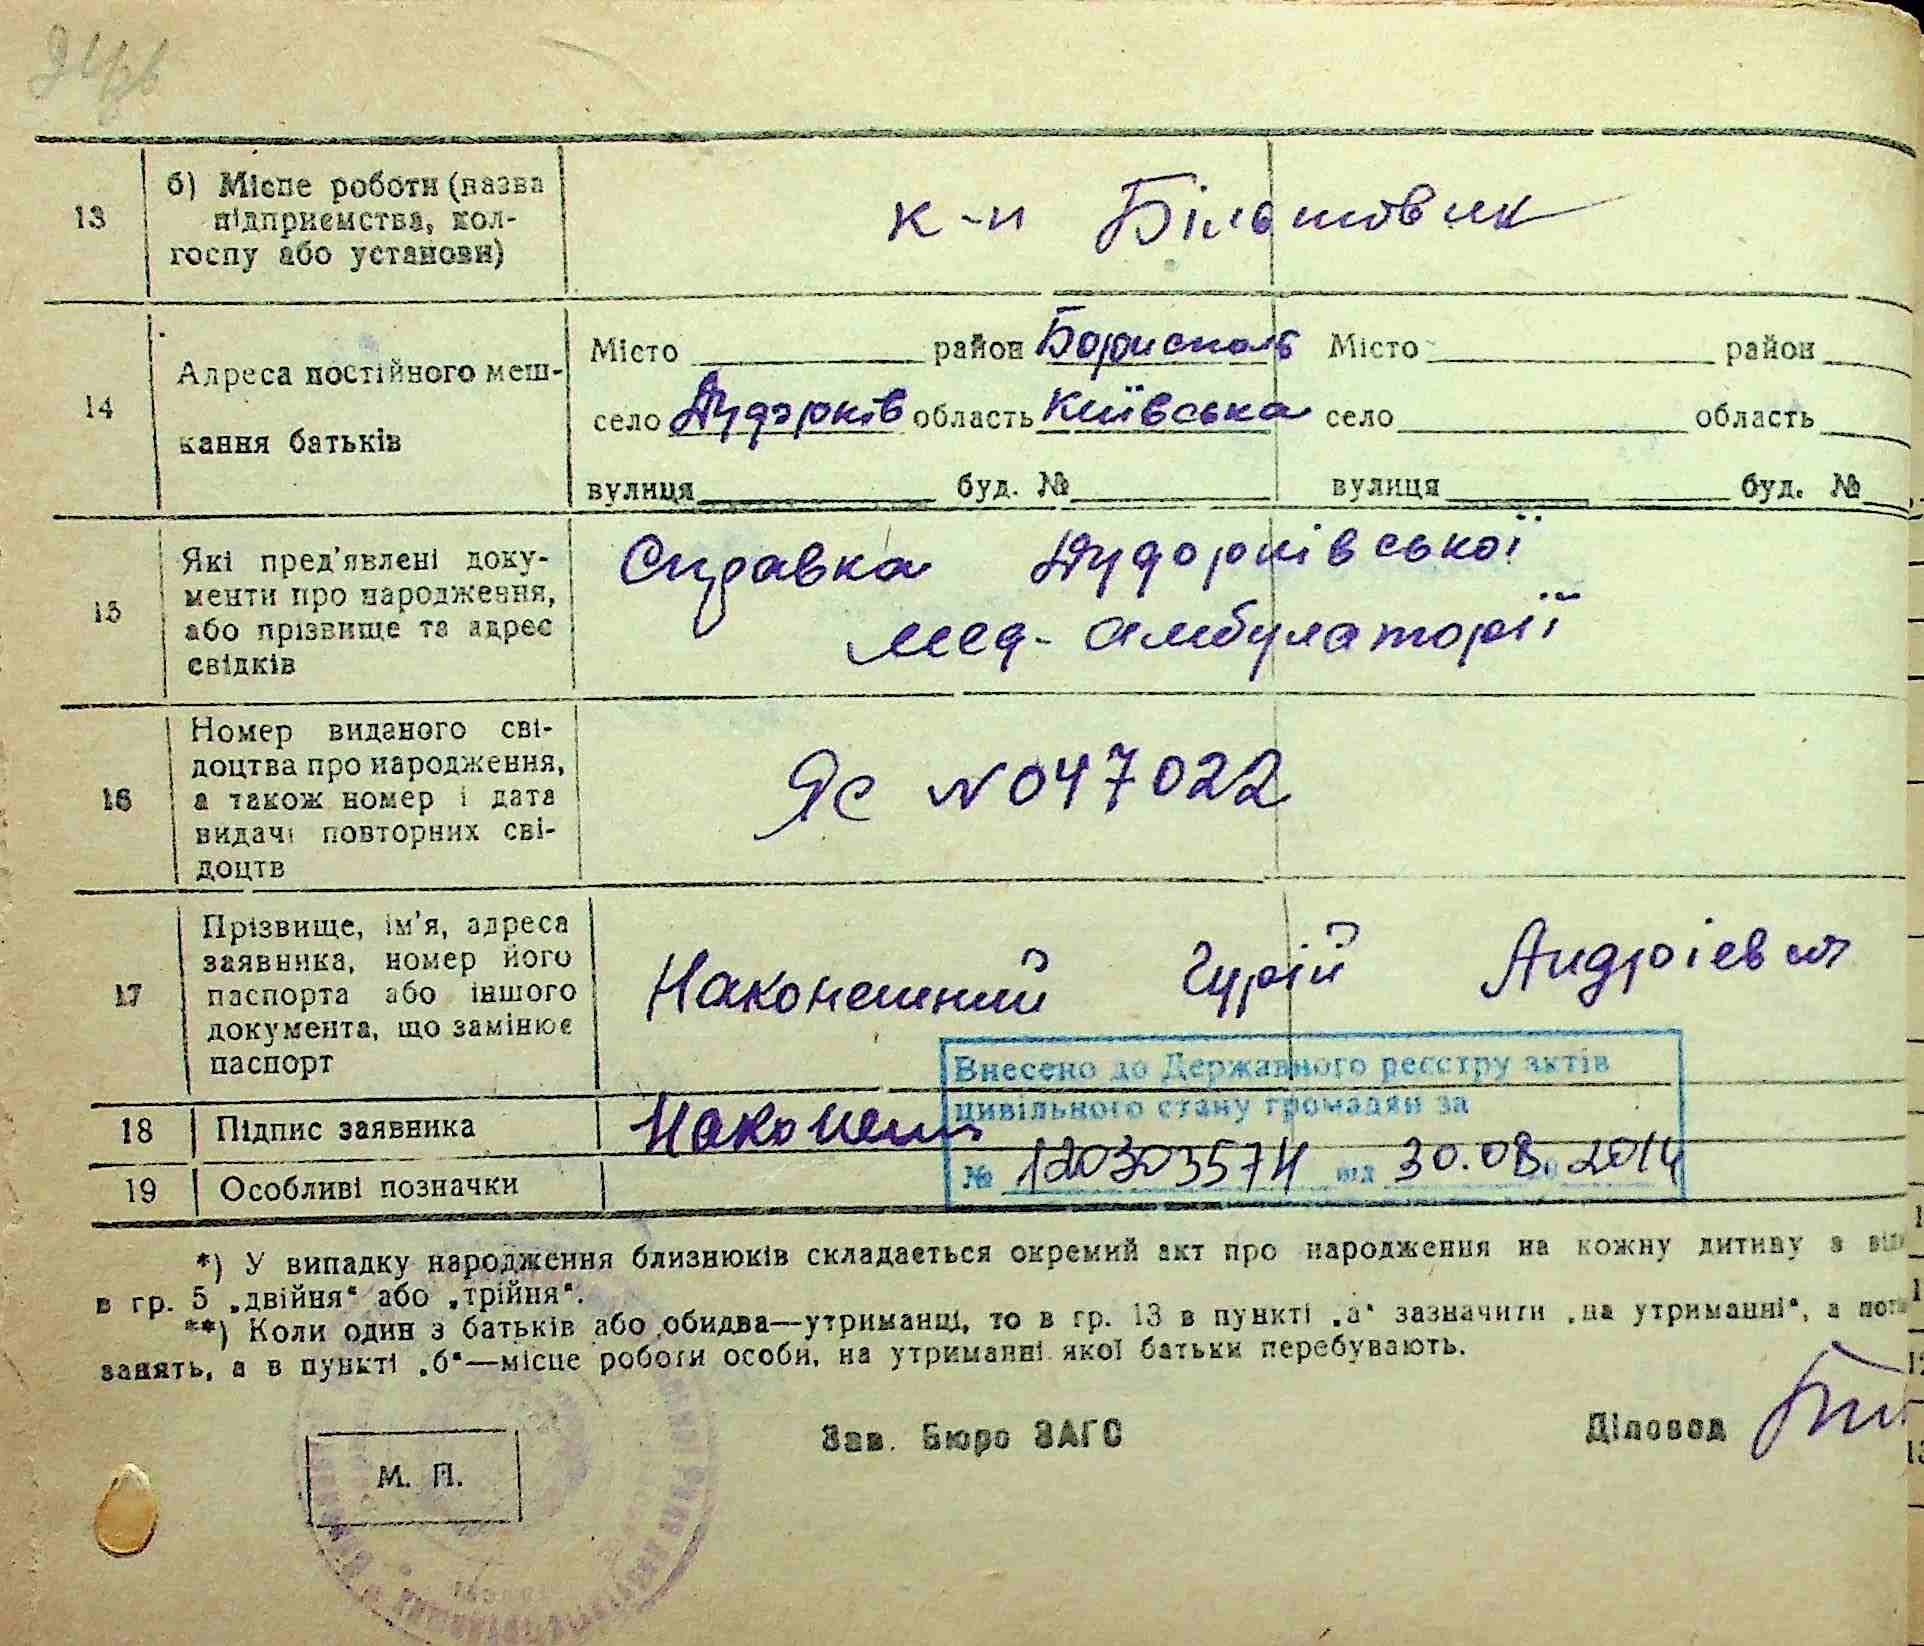 13 б) Місце роботи (назва підприємства, колгоспу або установи) к-п Більшовик
14 Адреса постійного мешкання батьків
Місто район Бориспольський Місто район
село Дударків область Київська село область
вулиця буд. № вулиця буд. №
15 Які пред'явлені документи про народження, або прізвище та адрес свідків
Справка Дударківської
мед-амбулаторії
16 Номер виданого свідоцтва про народження, а також номер і дата видачі повторних свідоцтв
ЯС №047022
17 Прізвище, ім'я, адреса заявника, номер його паспорта або іншого документа, що замінює паспорт
Наконешний Гурій Андрієвич
Внесено до Державного реєстру актів
цивільного стану громадян за
18 Підпис заявника Наконешн
№ від 30.08.2014
19 Особливі позначки
*) У випадку народження близнюків складається окремий акт про народження на кожну дитину з
в гр. 5 „двійня“ або „трійня“.
**) Коли один з батьків або обидва—утриманці, то в гр. 13 в пункті „а“ зазначити „на утриманні“, а
занять, а в пункті „б“—місце роботи особи, на утриманні якої батьки перебувають.
М. П.
Зав. Бюро ЗАГС
Діловод